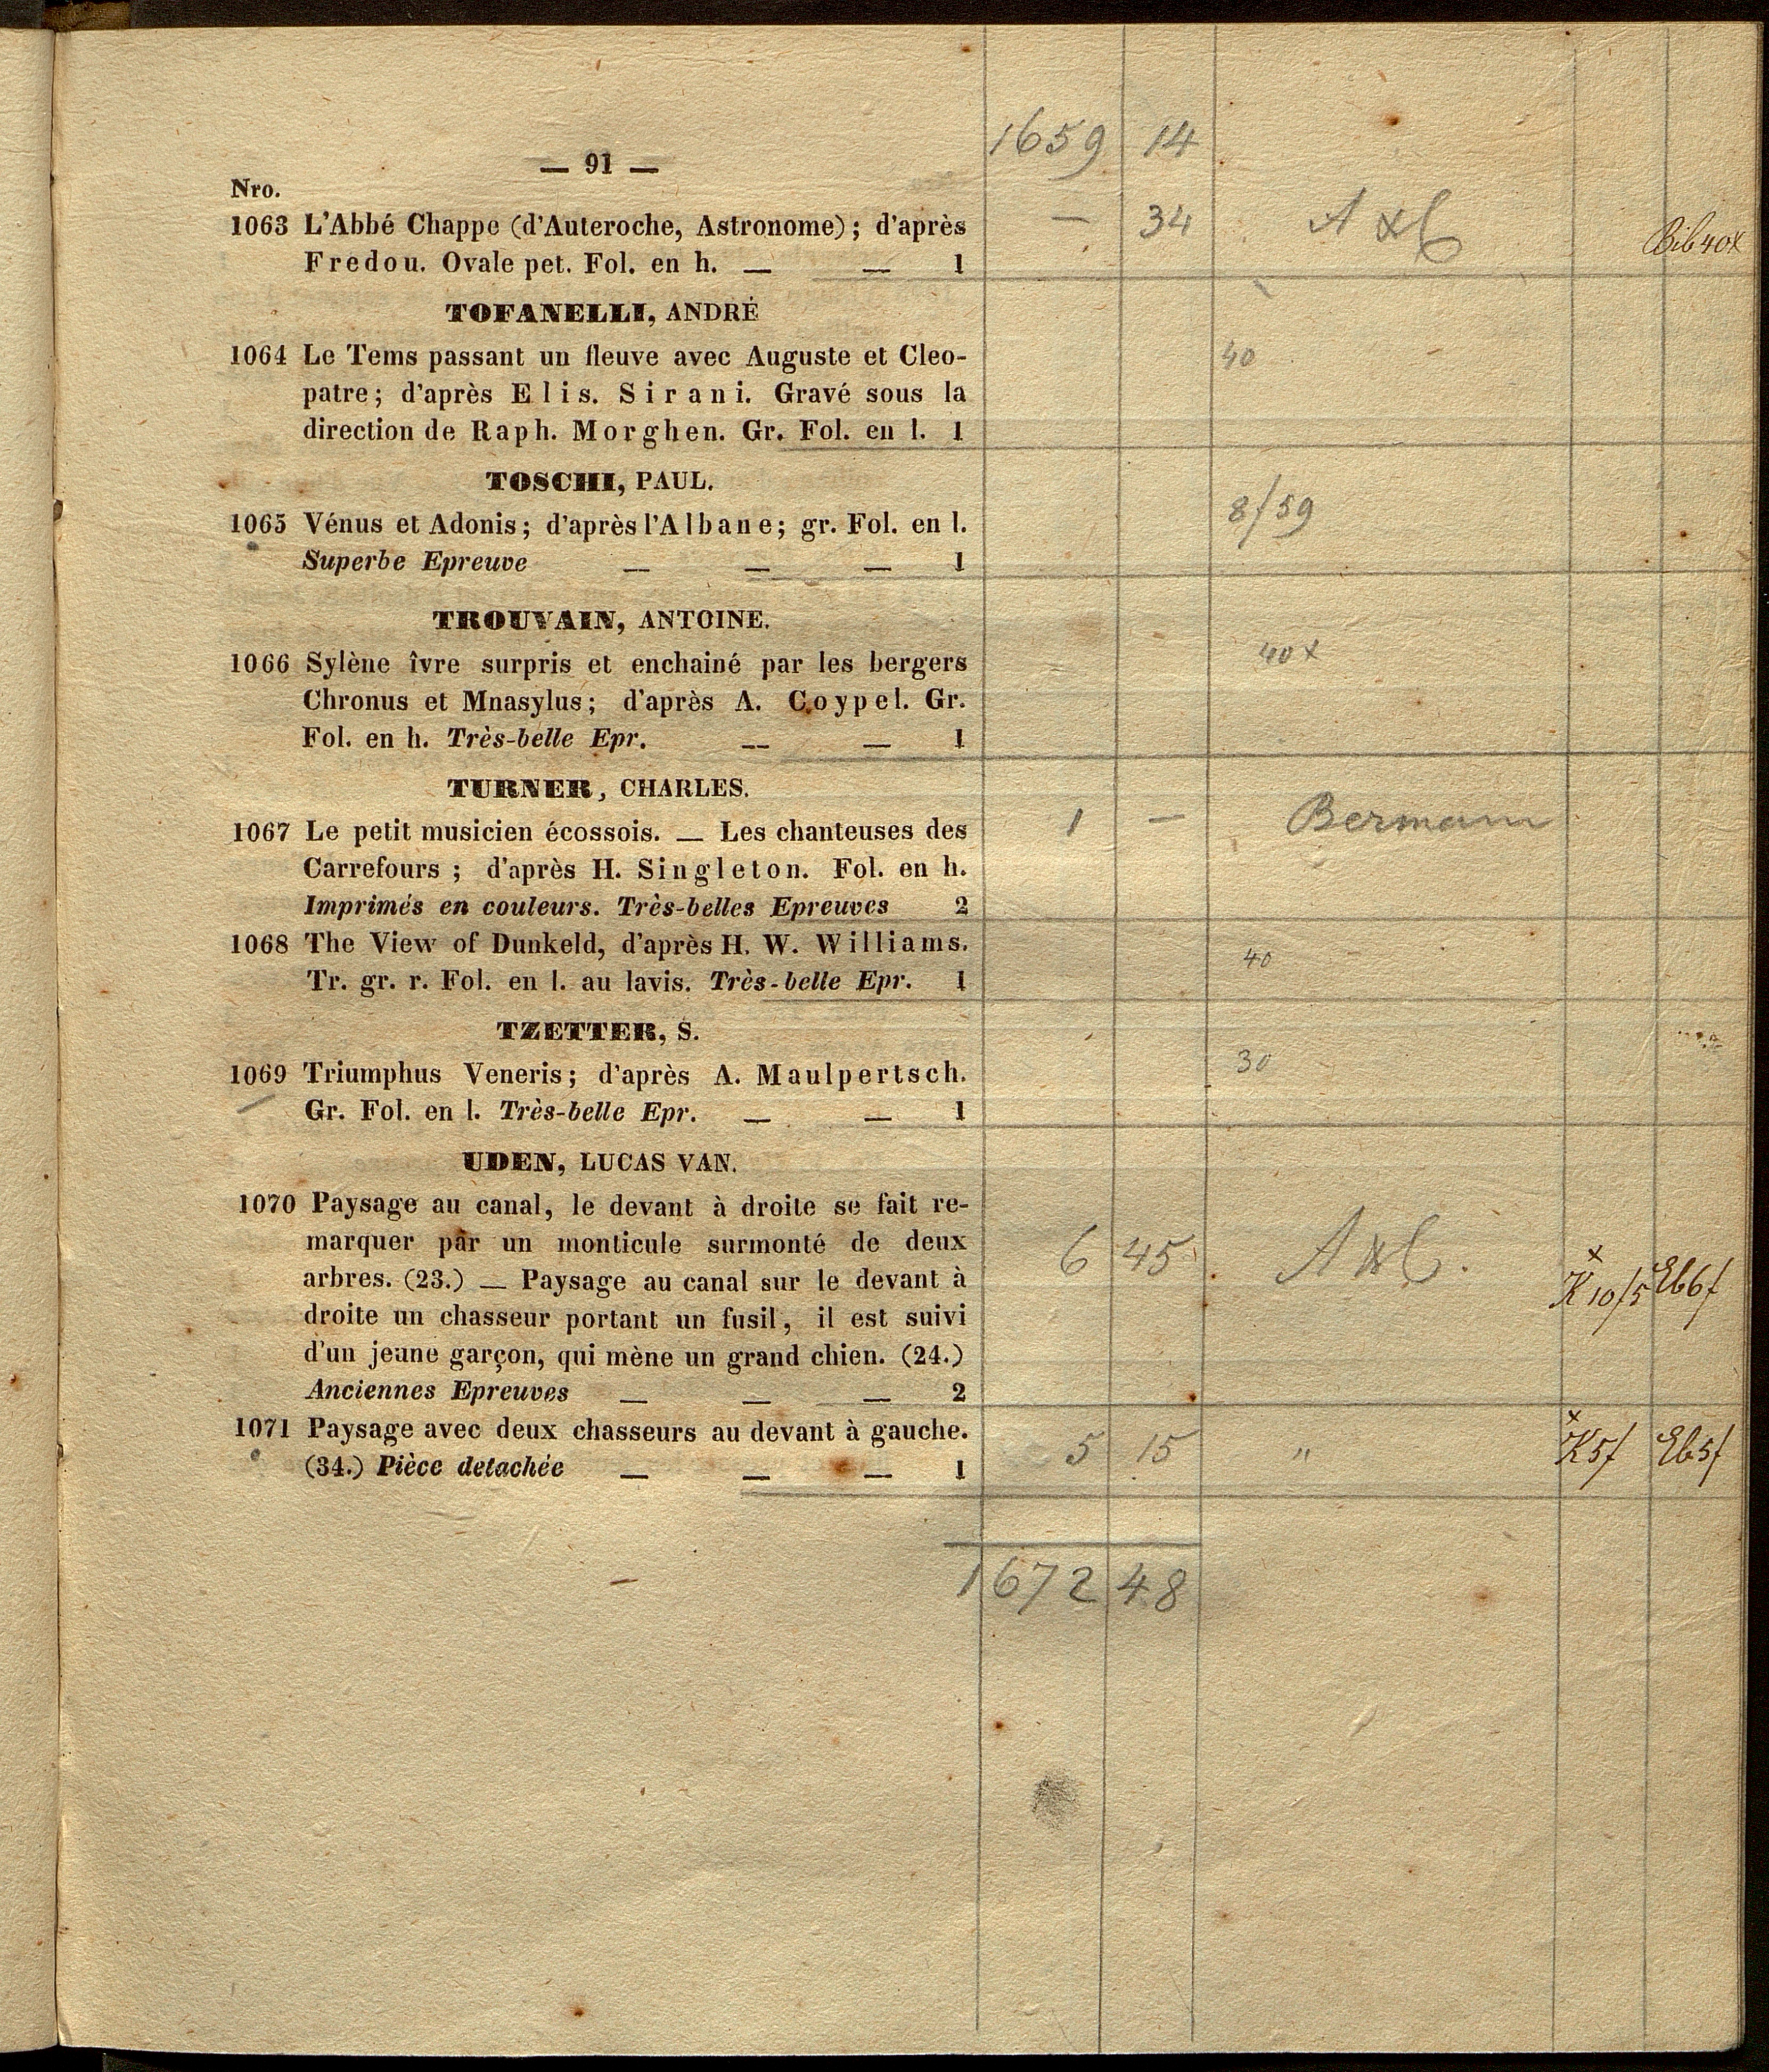 1659 14
— 91 —
Nro.
1063 L'Abbé Chappe (d'Auteroche, Astronome); d'après — 34 A & C Bib 40x
Fredou. Ovale pet. Fol. en h. — — 1
TOFANELLI, ANDRÉ
1064 Le Tems passant un fleuve avec Auguste et Cleo- 40
patre; d'après Elis. Sirani. Gravé sous la
direction de Raph. Morghen. Gr. Fol. en l. 1
TOSCHI, PAUL.
1065 Vénus et Adonis; d'après l'Albane; gr. Fol. en l. 8/59
Superbe Epreuve — — — 1
TROUVAIN, ANTOINE.
1066 Sylène îvre surpris et enchainé par les bergers 40 x
Chronus et Mnasylus; d'après A. Coypel. Gr.
Fol. en h. Très-belle Epr. — — 1
TURNER, CHARLES.
1067 Le petit musicien écossois. — Les chanteuses des 1 — Bermann
Carrefours ; d'après H. Singleton. Fol. en h.
Imprimés en couleurs. Très-belles Epreuves 2
1068 The View of Dunkeld, d'après H. W. Williams. 40
Tr. gr. r. Fol. en l. au lavis. Très-belle Epr. 1
TZETTER, S.
1069 Triumphus Veneris; d'après A. Maulpertsch. 30
Gr. Fol. en l. Très-belle Epr. — — 1
UDEN, LUCAS VAN.
1070 Paysage au canal, le devant à droite se fait re-
marquer par un monticule surmonté de deux 6 45 A & C. x
arbres. (23.) — Paysage au canal sur le devant à K 10/5 Eb6f
droite un chasseur portant un fusil, il est suivi
d'un jeune garçon, qui mène un grand chien. (24.)
Anciennes Epreuves — — — 2
1071 Paysage avec deux chasseurs au devant à gauche. 5 15 " x K5f Eb5f
(34.) Pièce detachée — — — 1
1672 48